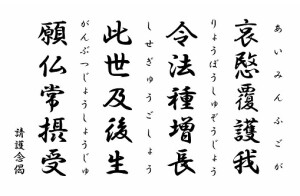 哀愍覆護我
あいみんふごが
令法種増長
りょうほうしゅぞうじょう
此世及後生
しせぎゅうごしょう
願仏常摂受
がんぶつじょうしょうじゅ
請護念偈